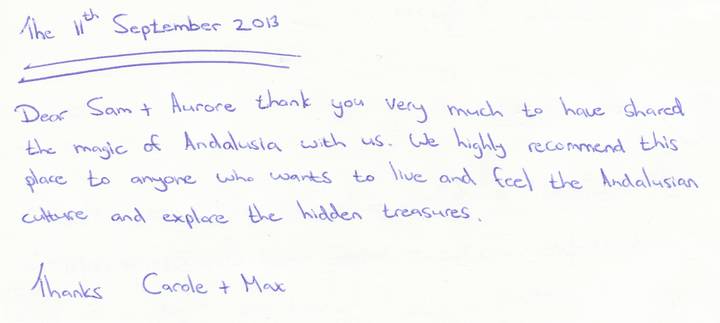 The 11th September 2013
Dear Sam + Aurore thank you very much to have shared
the magic of Andalusia with us. We highly recommend this
place to anyone who wants to live and feel the Andalusian
culture and explore the hidden treasures.
Thanks Carole + Max